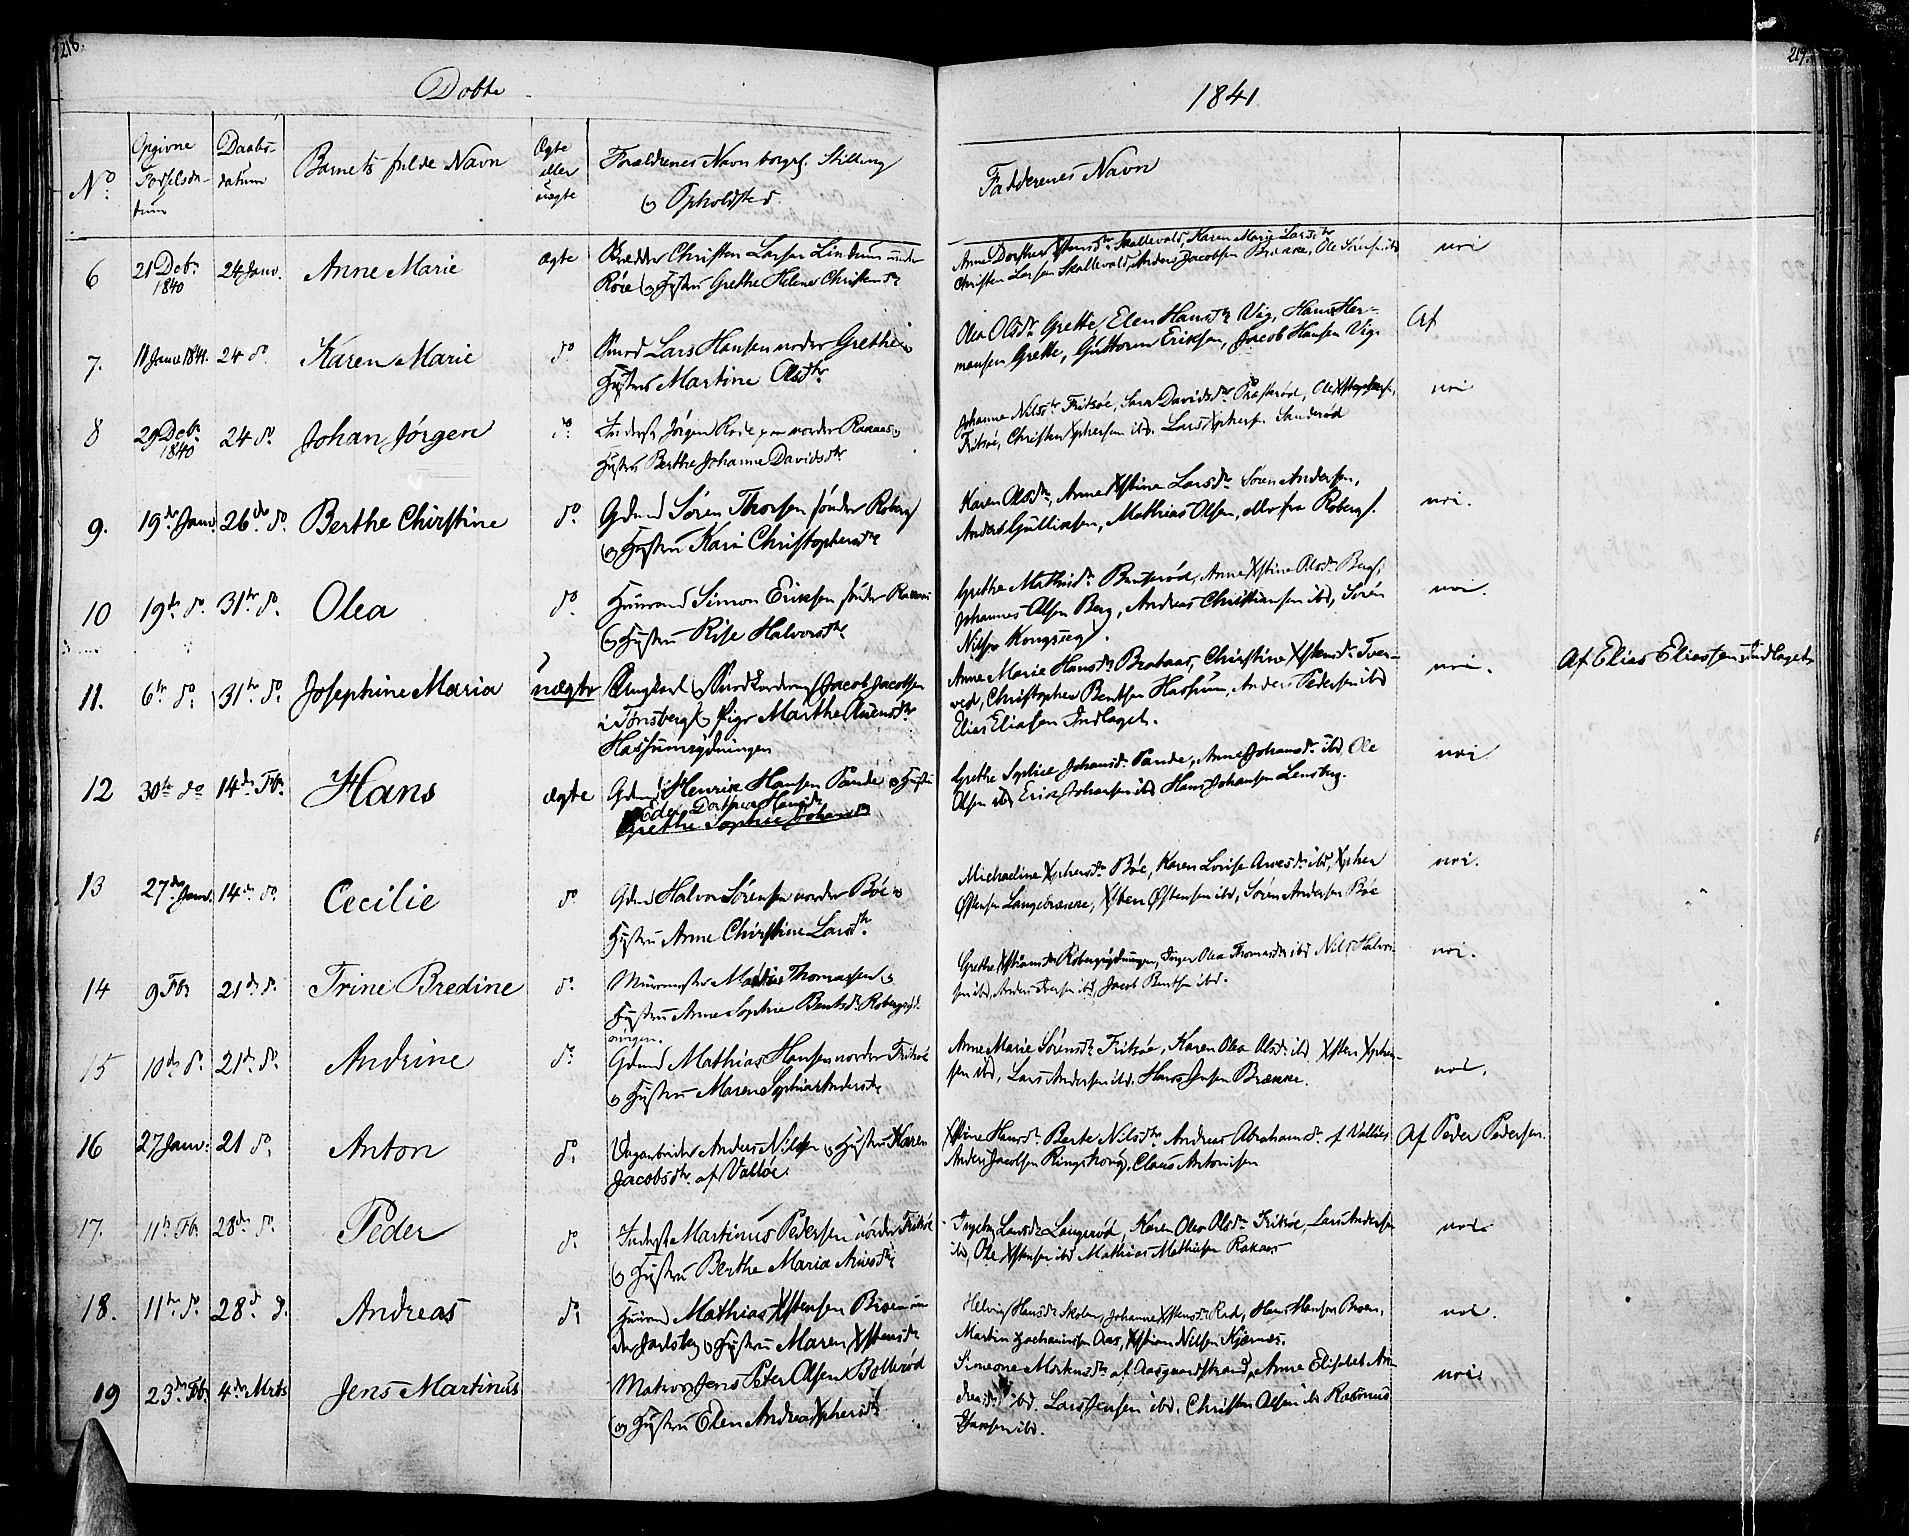 218.
219.
Døbte
1841
No
Opgivne Fødselsdatum
Daabsdatum
Barnets fulde Navn
Ægte eller uægte
Forældrenes Navn borgl. Stilling og Opholdsted
Faddernes Navn
6 21 Decbr 1840 24 Janv. Anne Marie ægte Christen Larsen Lindum under
Røre og Hustru Grethe Helene Christensdtr
Anne Dorthea Xstensdtr Skallevold, Karen Marie Larsdtr
Christen Larsen Skallevold, Anders Jacobsen Brække, Ole ibd
nei
7. 11 Janv 1841. 24 do Karen Marie do Smed Lars Hansen nordre Grette og
Hustru Martine Olsdtr
Olea Olsdr Grette, Elen Hansdtr Vig, Hans Her-
mansen Grette, Guttorm Eriksen, Jacob Hansen Vig.
Af
8 29 Decbr 1840 24 do Johan Jørgen do Inderst Jørgen nordre Rakaas og
Hustru Berthe Johanne Davidsdtr
Johanne Nilsdtr Fritsøe, Sara Davidsdtr Ole
Fritsøe, Christen Xphersen ibd. Lars Xphers. Sanderød
nei
9. 19de Janv. 26de do. Berthe Chirstine do Gdmd Søren Thorsen søndre Roberg
og Hustru Kari Christophersdtr
Karen Olsdtr, Anne Xstine Larsdtr Søren Andersen,
Anders Gulliksen, Mathias Olsen, alle fra Roberg.
nei.
10 19de do. 31te do. Olea do Huusmand Simon Eriksen søndre
og Hustru Rise Halvorsdtr
Grethe Mathisdtr Anne Xstine Olsdtr Berg,
Johannes Olsen Berg, Andreas Christiansen ibd, Sören
Nilsen Kongseg.
nei.
11. 6te do 31te do. Josephine Maria uægte Ungkarl og Jacob Jacobsen
i Tønsberg og Pige Marthe
Hassumrydningen
Anne Marie Hansdtr Brataas, Christine Xstensdtr Tver-
ved, Christopher Bentsen Hassum, Anders Pedersen ibd
Elias Eliasen Indlaget.
nei.
Af Elias Eliassen Indlaget
12 30te do 14de Fbr. Hans ægte Gdmd Henrik Hansen Sande og Hustru
Dorthea Hansdtr
Grethe Sophie Johansd
Grethe Sophie Johansdtr Sande, Anne Johansdtr ibd Ole
Olsen ibd Erik Johansen ibd Hans Johansen Lensberg.
nei
13 27de Janv. 14de do. Cecilie do Gdmd Halvor Sørensen nordre Bøe og
Hustru Anne Chirstine Larsdtr.
Michaeline Xphersdtr Bøe, Karen Lovise Arnesdtr ibd, Xpher
Østensen Langebrække, Xsten Østensen ibd, Søren Andersen Bøe
nei.
14 9 Fbr 21de do. Trine Bredine do Muurmester Mathias Thomassen og
Hustru Anne Sophie Bentsdtr Robergryd-
ningen.
Grethe Xstiansdtr Robergrydningen, Inger Olea Thomasdtr ibd Nils Halvor-
sen ibd, Anders Iversen ibd Jacob Bentsen ibd.
nei.
15 10de do 21de do. Andrine do Gdmd Mathias Hansen nordre Fritsøe
og Hustru Maren Sophie Andersdtr
Anne Marie Sørensdtr Fritsøe, Karen Olea Olsdtr ibd Xsten Xpher-
sen ibd, Lars Andersen ibd. Hans Jensen Brække.
nei.
16 27 Janv. 21 do. Anton do. Anders Nilsen og Hustru Karen
Jacobsdtr. af Valløe.
Xstine Hansdtr Berte Nilsdtr Andreas Abrahams. af Valløe
Anders Jacobsen Ringshoug, Claus Antonisen
Af Peder Pedersen.
17. 11te Fbr 28de do. Peder do. Inderst Martinus Pedersen nordre Fritsøe
og Hustru Berthe Maria Arnesdtr
Ingeborg Larsdtr Langerød, Karen Olea Olsdtr Fritsøe, Lars Andersen
ibd, Ole Xstensen ibd Mathias Mathisen Rakaas
nei.
18. 11te do 28de do. Andreas do Huusmd Mathias Xstensen Broen un-
der Jarlsberg og Hustru Maren Xstensdtr
Helvig Hansdtr Skolen, Johanne Xstensdtr Rød, Hans Hansen Broen,
Martin Zachariasen Aas, Xstian Nilsen Kjærnes.
nei.
19 23de Fbr 4de Mrts Jens Martinus Matros Jens Peter Olsen Bollerød
og Hustru Elen Andrea Xphersdtr
Simeone Morkensdtr af Aasgaardstrand, Anne Elisabet An-
dreasd. ibd. Lars Jensen ibd. Christen Olsen ibd Rasmus
Hansen ibd.
nei.